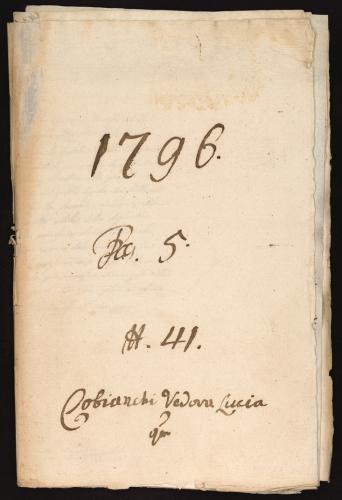 1796.
Fa. 5.
H. 41.
Cobianchi Vedova Lucia
qm